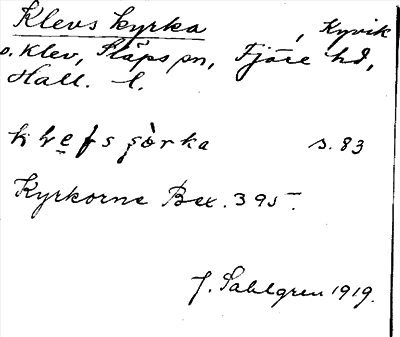 Klevs kyrka, Kyvik
o. Klev, Släps sn, Fjäre hd,
Hall. l.
s. 83
Kyrkorne Bex. 395
J. Sahlgren 1919.